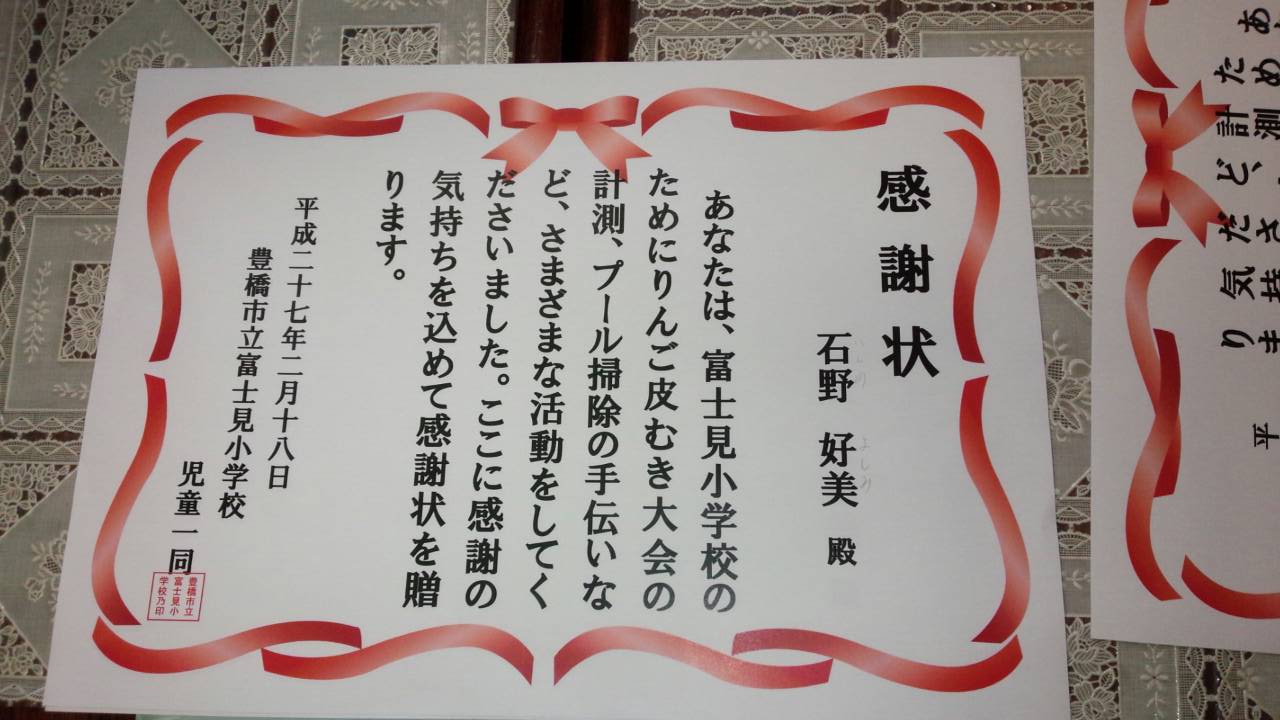 感謝状
石野 好美 殿
あなたは、富士見小学校の
ためにりんご皮むき大会の
計測、プール掃除の手伝いな
ど、さまざまな活動をしてく
ださいました。ここに感謝の
気持ちを込めて感謝状を贈
ります。
平成二十七年二月十八日
豊橋市立富士見小学校
児童一同
豊橋市立
富士見小
学校乃印